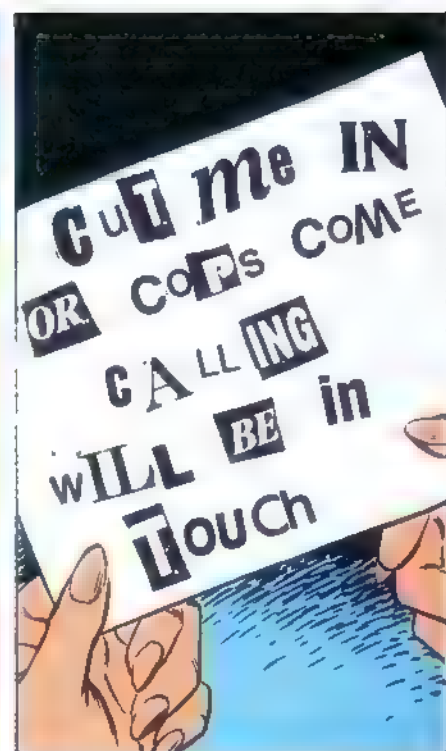 CuT me IN
OR COPs COME
CALL ING
wILL BE in
TouCh